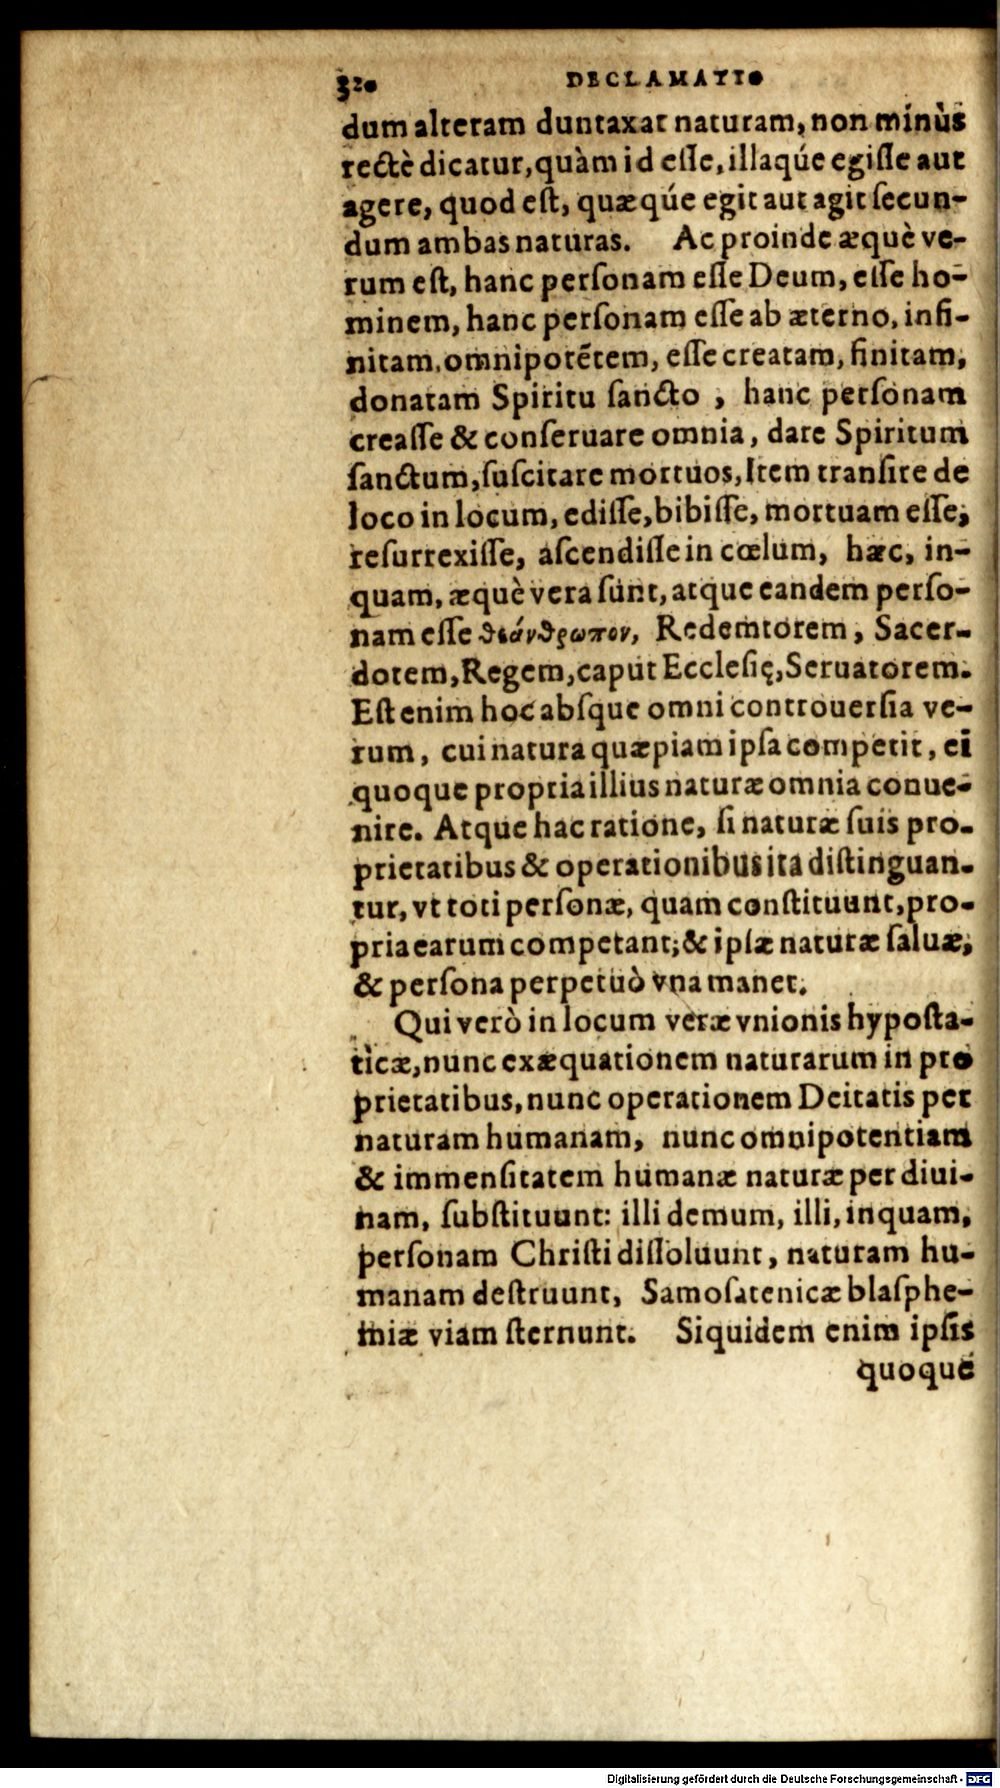 320 DECLAMATIO
dum alteram duntaxat naturam, non minùs
rectè dicatur, quàm id eſſe, illaqúe egiſſe aut
agere, quod eſt, quæqúe egit aut agit ſecun-
dum ambas naturas. Ac proinde æquè ve-
rum eſt, hanc perſonam eſſe Deum, eſſe ho-
minem, hanc perſonam eſſe ab æterno, infi-
nitam, omnipotẽtem, eſſe creatam, finitam,
donatam Spiritu ſancto , hanc perſonam
creaſſe & conſeruare omnia, dare Spiritum
ſanctum, ſuſcitare mortuos, Item tranſire de
loco in locum, ediſſe, bibiſſe, mortuam eſſe,
reſurrexiſſe, aſcendiſſe in cœlum, hæc, in-
quam, æquè vera ſunt, atque eandem perſo-
nam eſſe ϑεάνϑρωπον, Redemtorem, Sacer-
dotem, Regem, caput Eccleſię, Seruatorem.
Eſt enim hoc abſque omni controuerſia ve-
rum, cui natura quæpiam ipſa competit, ei
quoque propria illius naturæ omnia conue-
nire. Atque hac ratione, ſi naturæ ſuis pro-
prietatibus & operationibus ita diſtinguan-
tur, vt toti perſonæ, quam conſtituunt, pro-
pria earum competant; & ipſæ naturæ ſaluæ,
& perſona perpetuò vna manet.
Qui verò in locum veræ vnionis hypoſta-
ticæ, nunc exæquationem naturarum in pro
prietatibus, nunc operationem Deitatis per
naturam humanam, nunc omnipotentiam
& immenſitatem humanæ naturæ per diui-
nam, ſubſtituunt: illi demum, illi, inquam,
perſonam Chriſti diſſoluunt, naturam hu-
manam deſtruunt, Samoſatenicæ blaſphe-
miæ viam ſternunt. Siquidem enim ipſis
quoque
Digitalisierung gefördert durch die Deutsche Forschungsgemeinschaft - DFG